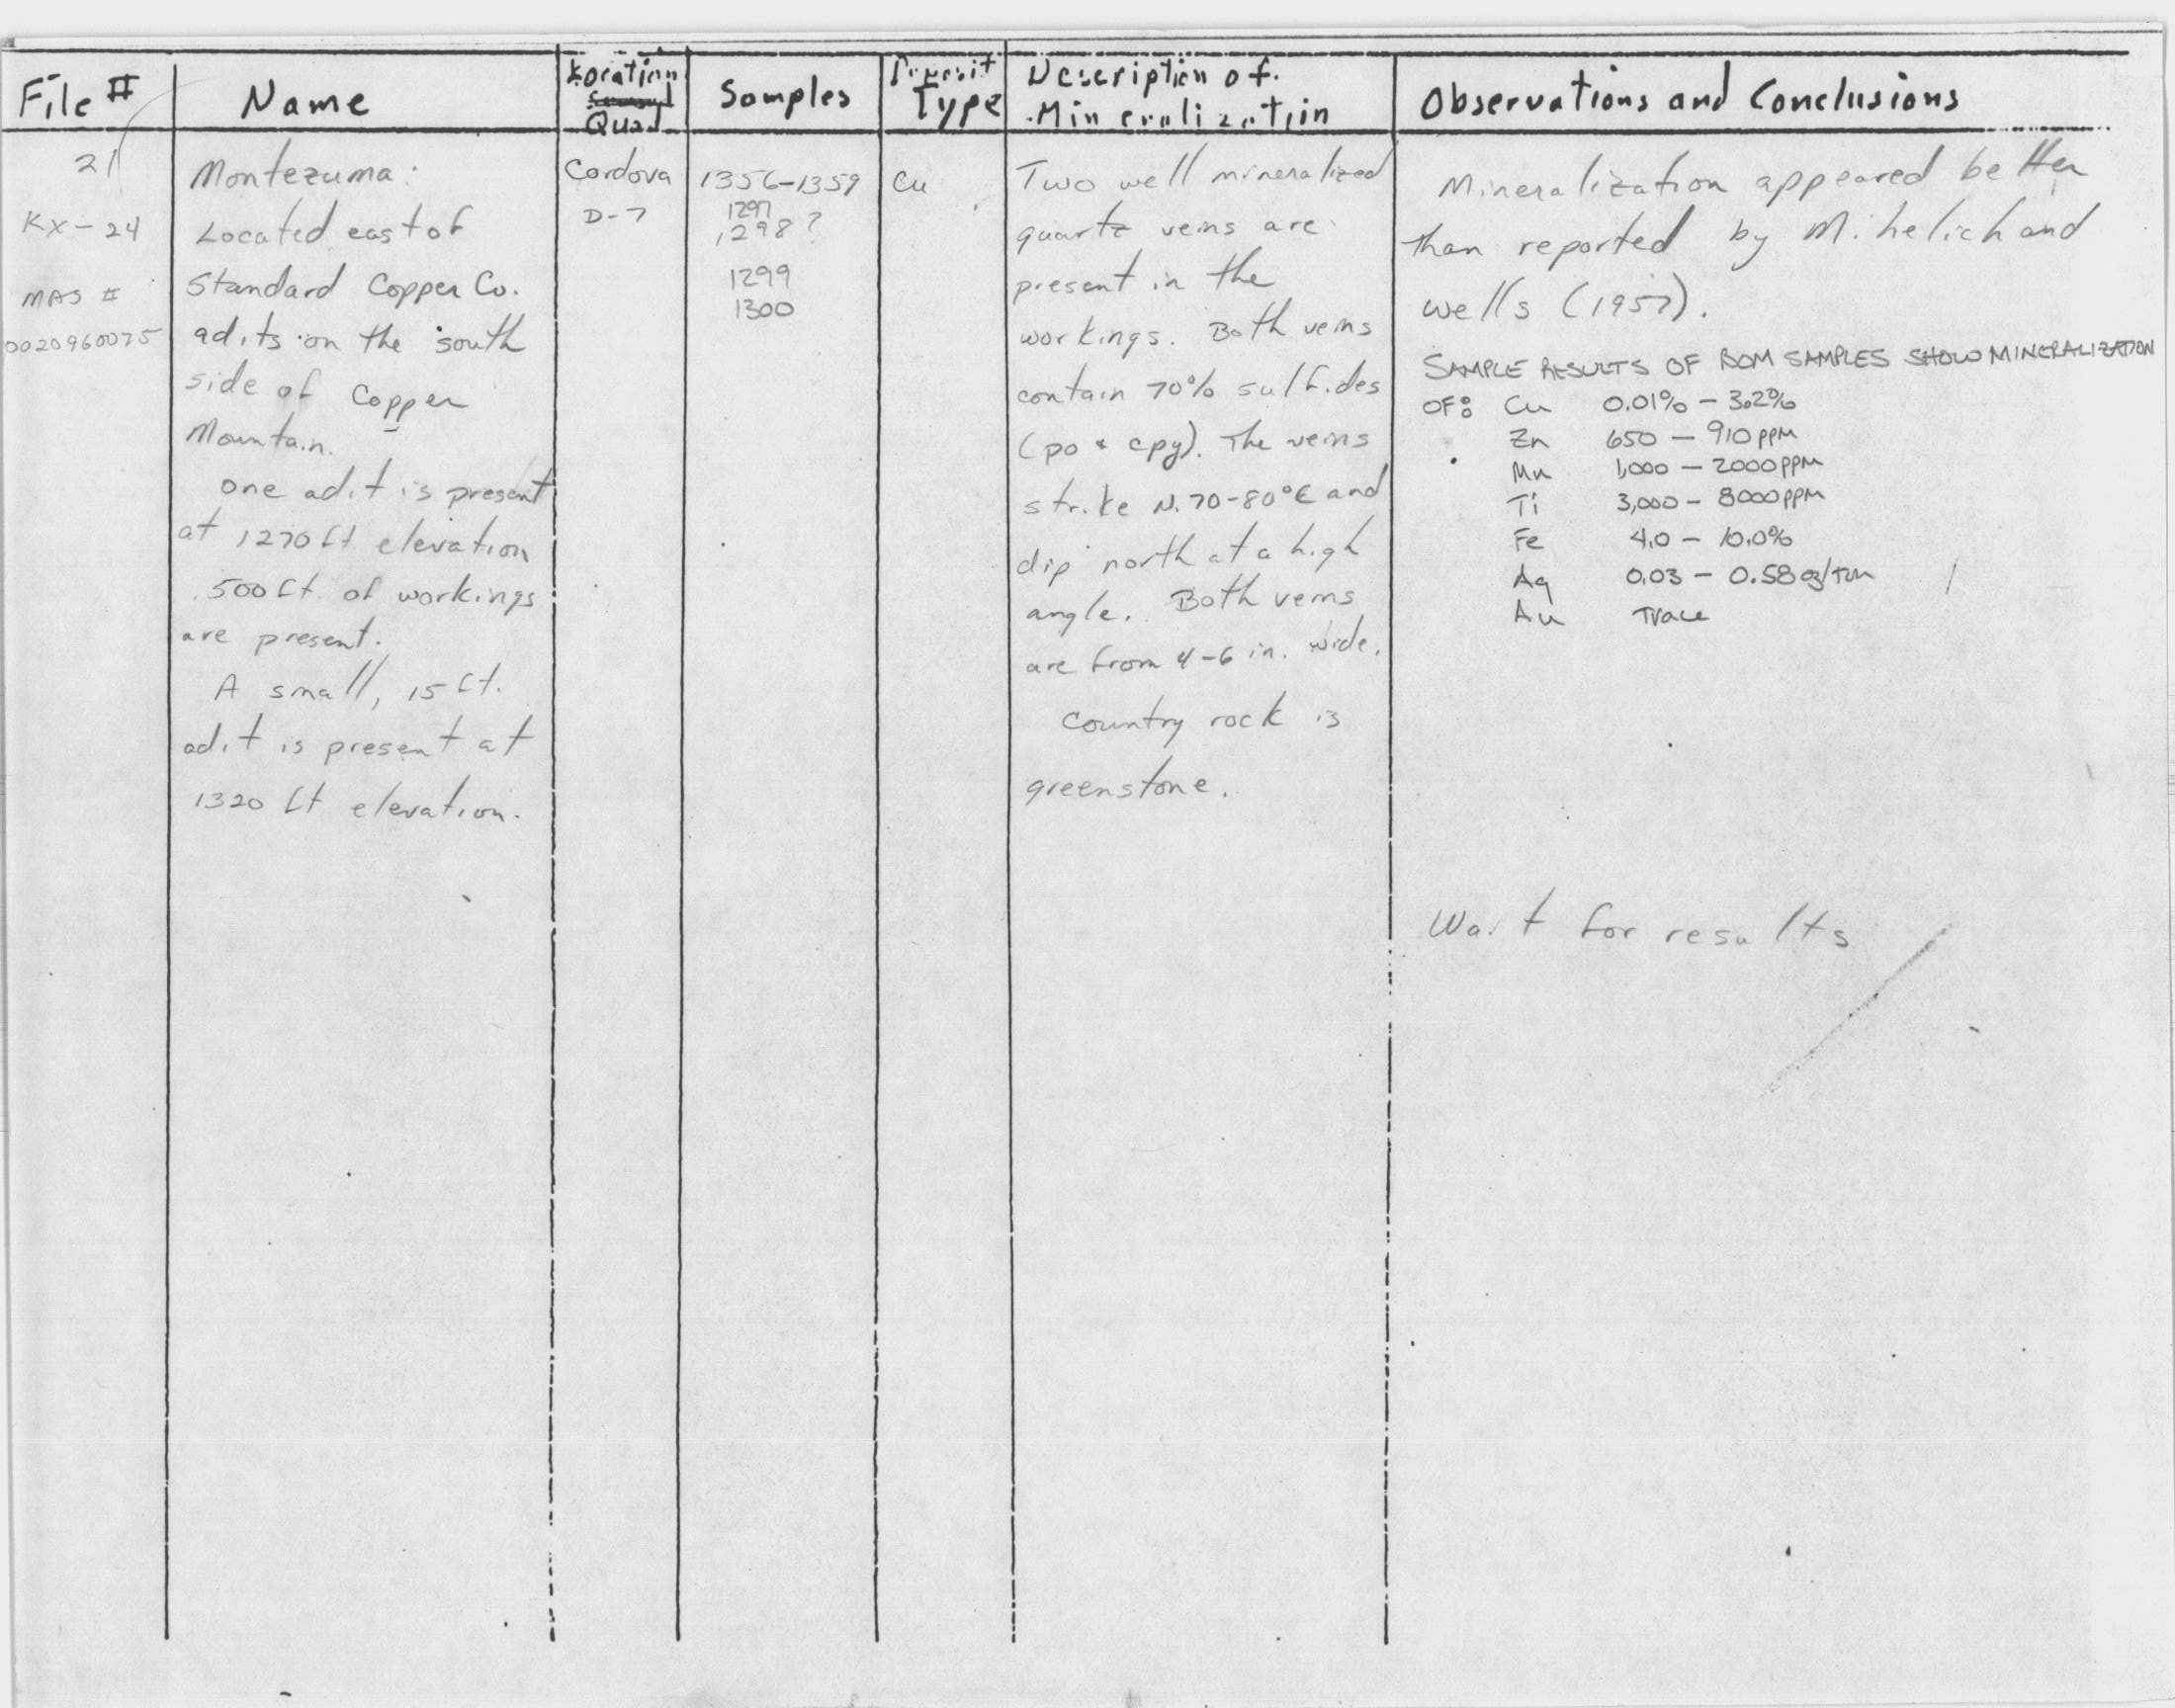 File #
Name
Location
Quad
Samples
Deposit
Type
Description of
Mineralization
Observations and Conclusions
21
KX-24
MAS #
0020960075
Montezuma:
Located east of
Standard Copper Co.
adits on the south
side of Copper
Mountain.
One adit is present
at 1270 ft elevation
500 ft. of workings
are present.
A small, 15 ft.
adit is present at
1320 ft elevation.
Cordova
D-7
1356-1359
1297
1298?
1299
1300
Cu
Two well mineralized
quartz veins are
present in the
workings. Both veins
contain 70% sulfides
(po & cpy). The veins
strike N. 70-80°E and
dip north at a high
angle. Both veins
are from 4-6 in. wide.
Country rock is
greenstone.
Mineralization appeared better
than reported by Mihelich and
Wells (1957).
SAMPLE RESULTS OF BOM SAMPLES SHOW MINERALIZATION
OF: Cu 0.01% - 3.2%
Zn 650 - 910 PPM
Mn 1,000 - 2000 PPM
Ti 3,000 - 8000 PPM
Fe 4.0 - 10.0%
Ag 0.03 - 0.58 oz/Ton
Au Trace
Wait for results